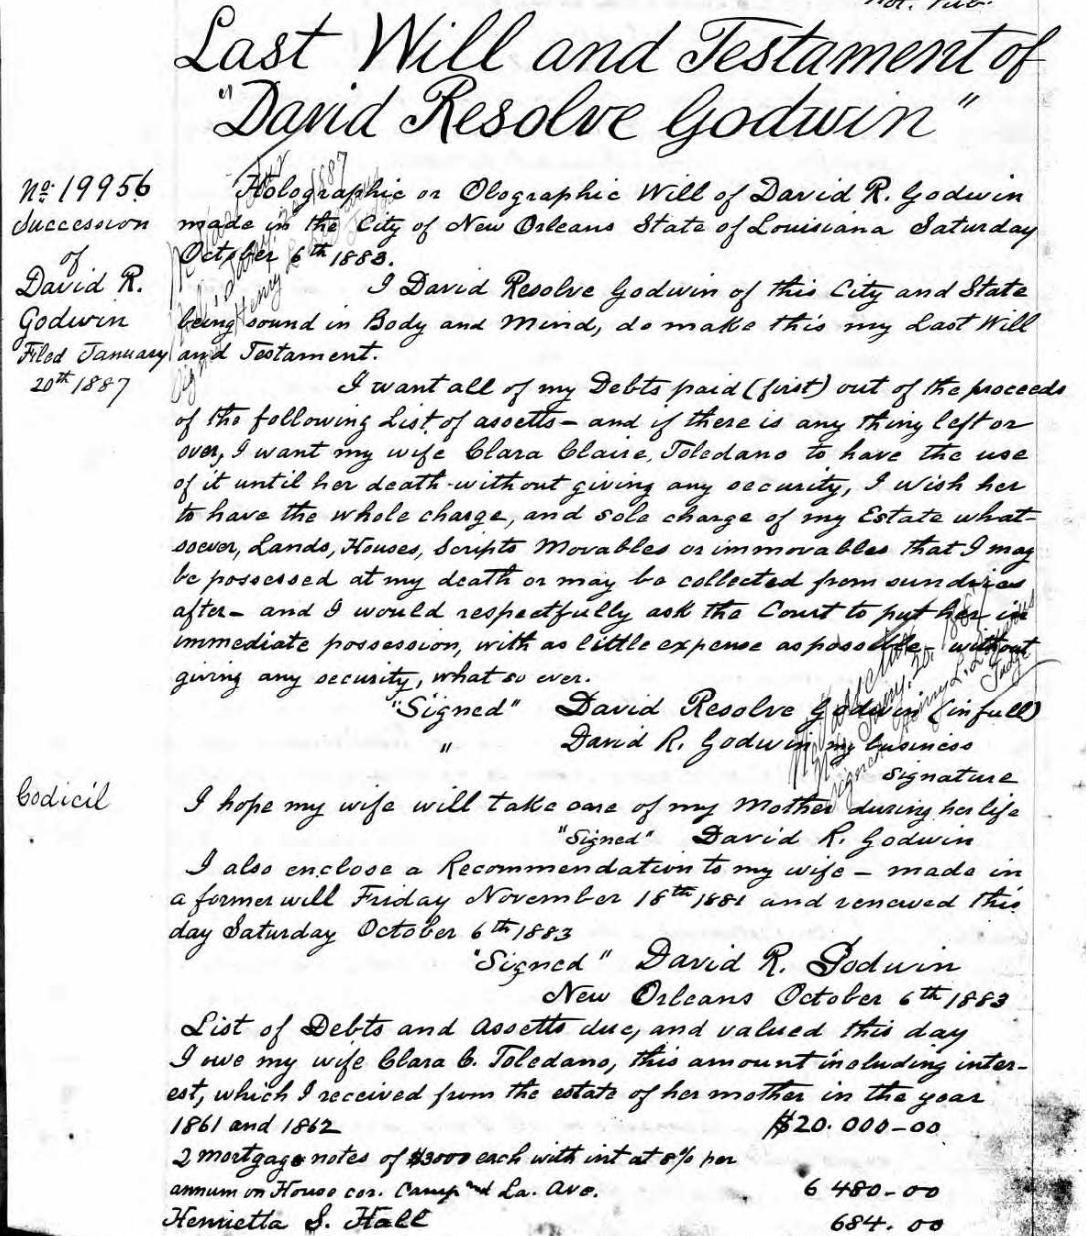 Not. Pub.
Last Will and Testament of
"David Resolve Godwin"
No. 19956
Succession
of
David R.
Godwin
Filed January
20th 1887
Holographic or Olographic Will of David R. Godwin
made in the City of New Orleans State of Louisiana Saturday
October 6th 1883.
I David Resolve Godwin of this City and State
being sound in Body and Mind, do make this my Last Will
and Testament.
I want all of my Debts paid (first) out of the proceeds
of the following List of assetts - and if there is any thing left or
over, I want my wife Clara Claire, Toledano to have the use
of it until her death - without giving any security, I wish her
to have the whole charge, and sole charge of my Estate what-
soever, Lands, Houses, Scripts Movables or immovables that I may
be possessed at my death or may be collected from sundries
after - and I would respectfully ask the Court to put her in
immediate possession, with as little expense as possible - without
giving any security, what so ever.
"Signed" David Resolve Godwin (in full)
" David R. Godwin my business
signature
Codicil
I hope my wife will take care of my Mother during her life
"Signed" David R. Godwin
I also enclose a Recommendation to my wife - made in
a former will Friday November 18th 1881 and renewed this
day Saturday October 6th 1883
"Signed" David R. Godwin
New Orleans October 6th 1883
List of Debts and Assetts due, and valued this day
I owe my wife Clara C. Toledano, this amount including inter-
est, which I received from the estate of her mother in the year
1861 and 1862 $20.000-00
2 mortgage notes of $3000 each with int at 8% per
annum on House cor. Camp and La. Ave. 6480-00
Henrietta S. Hall 684.00